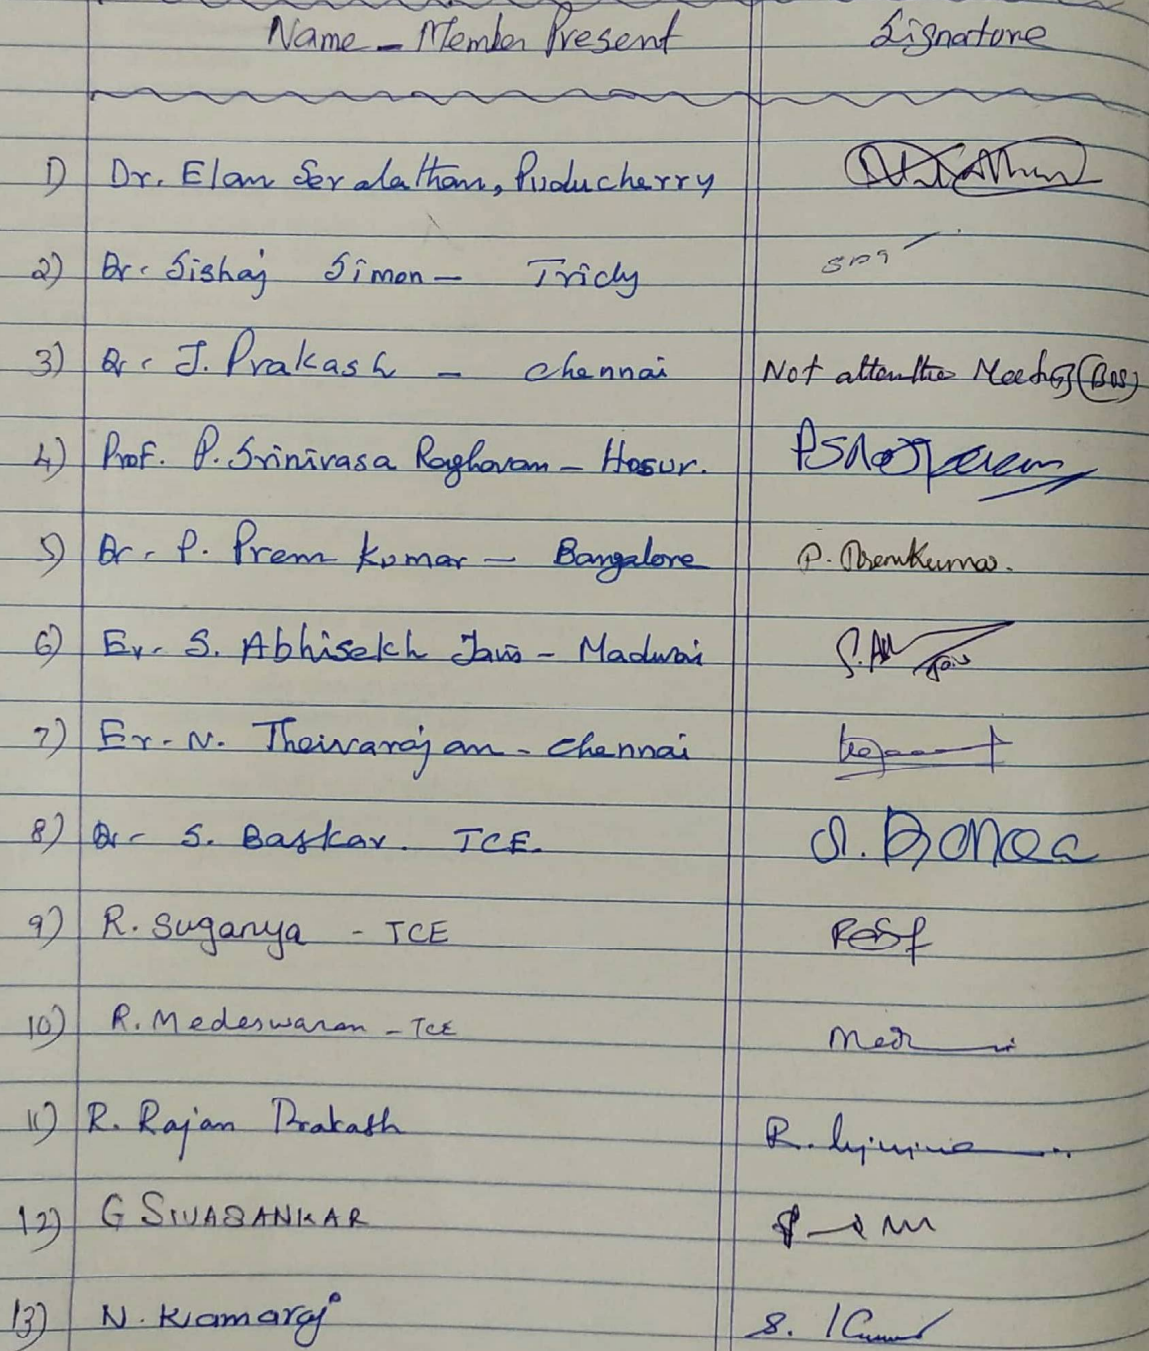 Name - Member Present Signature
1) Dr. Elan Seralathan, Puducherry
2) Dr. Sishaj Simon - Tricly
3) Dr. J. Prakash - chennai Not Meeting (BOS)
4) Prof. P. Srinivasa Raghavan - Hosur.
5) Dr. P. Prem Kumar - Bangalore P. PremKumar.
6) Er. S. Abhisekh - Madurai
7) Er. N. Theivarajan - chennai
8) Dr. S. Baskar. TCE.
9) R. Suganya - TCE
10) R. Medeswaran - TCE
11) R. Rajan Prakash
12) G SIVASANKAR
13) N. Kamaraj